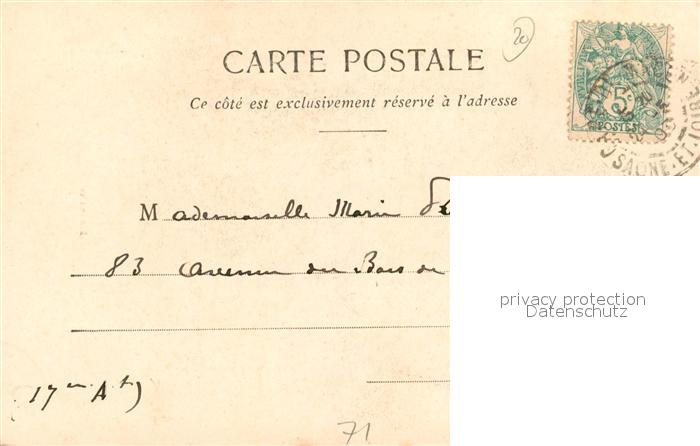 20
CARTE POSTALE
Ce côté est exclusivement réservé à l'adresse
5c
POSTES
SAONE-ET-LOIRE
Mademoiselle Marie
83 Avenue du Bois de
privacy protection
Datenschutz
17
71